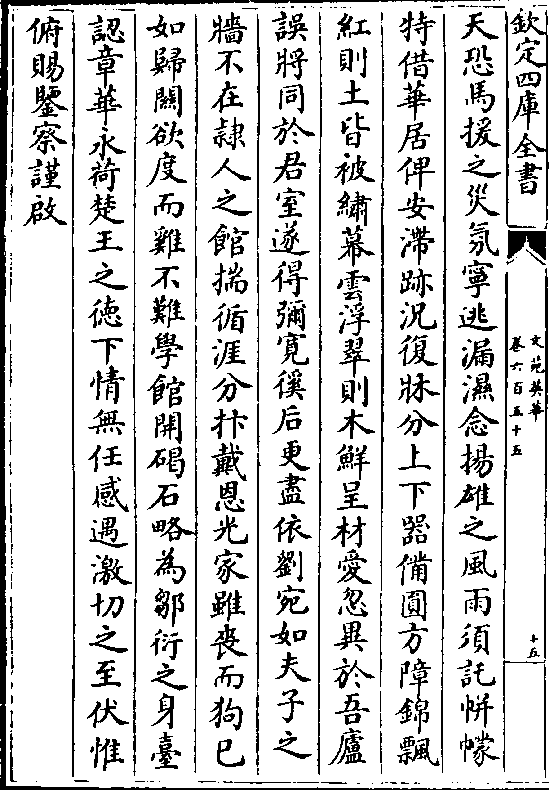 欽定四庫全書
文苑英華
卷六百五十五
十五
天恐馬援之災氛寧逃漏濕念揚雄之風雨須託帡幪
特借華居俾安滯跡況復牀分上下器備圓方障錦飄
紅則土皆被繡幕雲浮翠則木鮮呈材愛忽異於吾廬
誤將同於君室遂得彌寛徯后更盡依劉宛如夫子之
牆不在隷人之館揣循涯分抃戴恩光家雖喪而狗已
如歸關欲度而雞不難學館開碣石略為鄒衍之身臺
認章華永荷楚王之徳下情無任感遇激切之至伏惟
俯賜鑒察謹啟